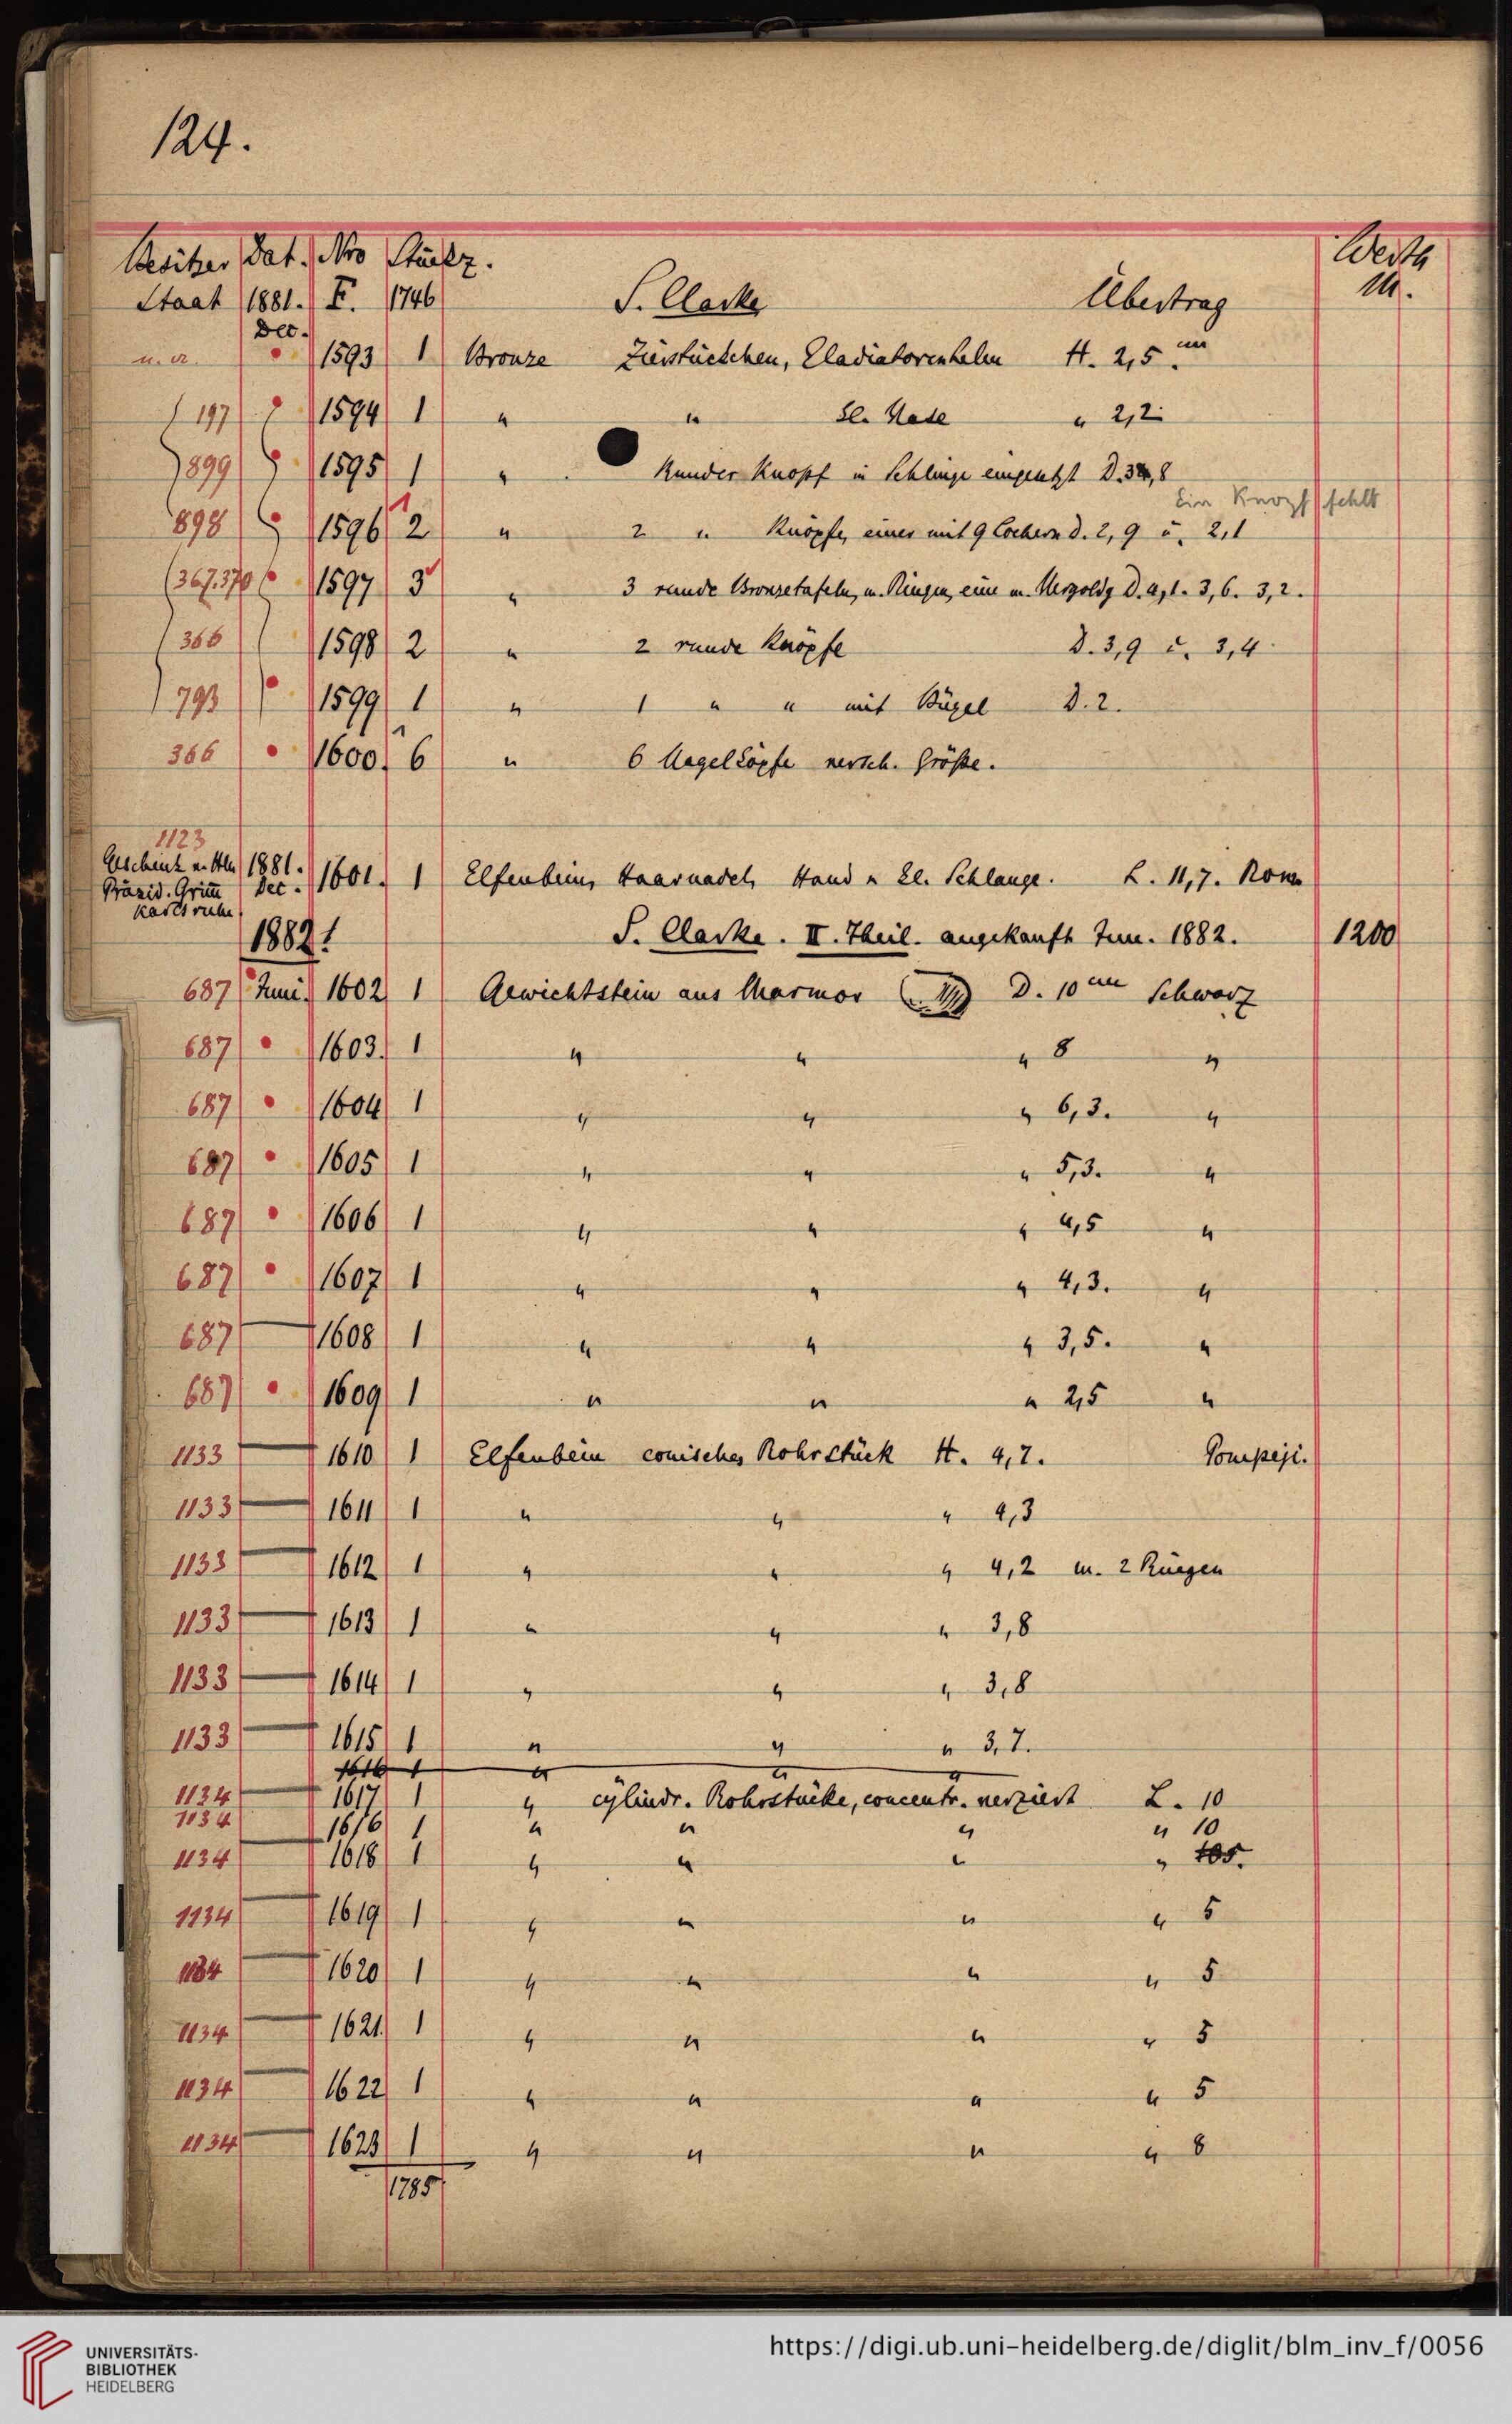 124.
Besitzer Dat. Nro Stückz. Werth
Staat 1881. F. 1746 S. Clarke Übertrag M.
Dec.
u. a. 1593 1 Bronze Zierstückchen, Gladiatorenhelm H. 2,5 cm
197 1594 1 " " kl. Vase " 2,2
899 1595 1 " Runder Knopf in Schlinge D. 3,8
Ein Knopf fehlt
898 1596 2 1 " 2 " Knöpfe, einer mit 9 Löchern D. 2,9 u. 2,1
367.370 1597 3 " 3 runde Bronzetafeln, m. Ringen, eine m. Vergoldg D. 4,1. 3,6. 3,2.
366 1598 2 " 2 runde Knöpfe D. 3,9 u. 3,4
793 1599 1 " 1 " " mit Bügel D. 2.
366 1600. 6 " 6 Nagelköpfe versch. Größe.
1123
Geschenk v. Hn 1881. 1601. 1 Elfenbein, Haarnadel, Hand u kl. Schlange. L. 11,7. Rom
Präsid. Grimm Dec.
Karlsruhe
1882! S. Clarke. II. Theil. angekauft Jun. 1882. 1200
687 Juni. 1602 1 Gewichtstein aus Marmor D. 10 cm Schwarz
687 1603. 1 " " " 8 "
687 1604 1 " " " 6,3. "
687 1605 1 " " " 5,3. "
687 1606 1 " " " 4,5 "
687 1607 1 " " " 4,3. "
687 1608 1 " " " 3,5. "
687 1609 1 " " " 2,5 "
1133 1610 1 Elfenbein conisches Rohrstück H. 4,7. Pompeji.
1133 1611 1 " " " 4,3
1133 1612 1 " " " 4,2 m. 2 Ringen
1133 1613 1 " " " 3,8
1133 1614 1 " " " 3,8
1133 1615 1 " " " 3,7.
1616 1 " " "
1134 1617 1 " cylindr. Rohrstücke, concentr. verziert L. 10
1134 1616 1 " " " " 10
1134 1618 1 " " " " 105.
1134 1619 1 " " " " 5
1134 1620 1 " " " " 5
1134 1621. 1 " " " " 5
1134 1622 1 " " " " 5
1134 1623 1 " " " " 8
1785
UNIVERSITÄTS-
BIBLIOTHEK
HEIDELBERG
https://digi.ub.uni-heidelberg.de/diglit/blm_inv_f/0056